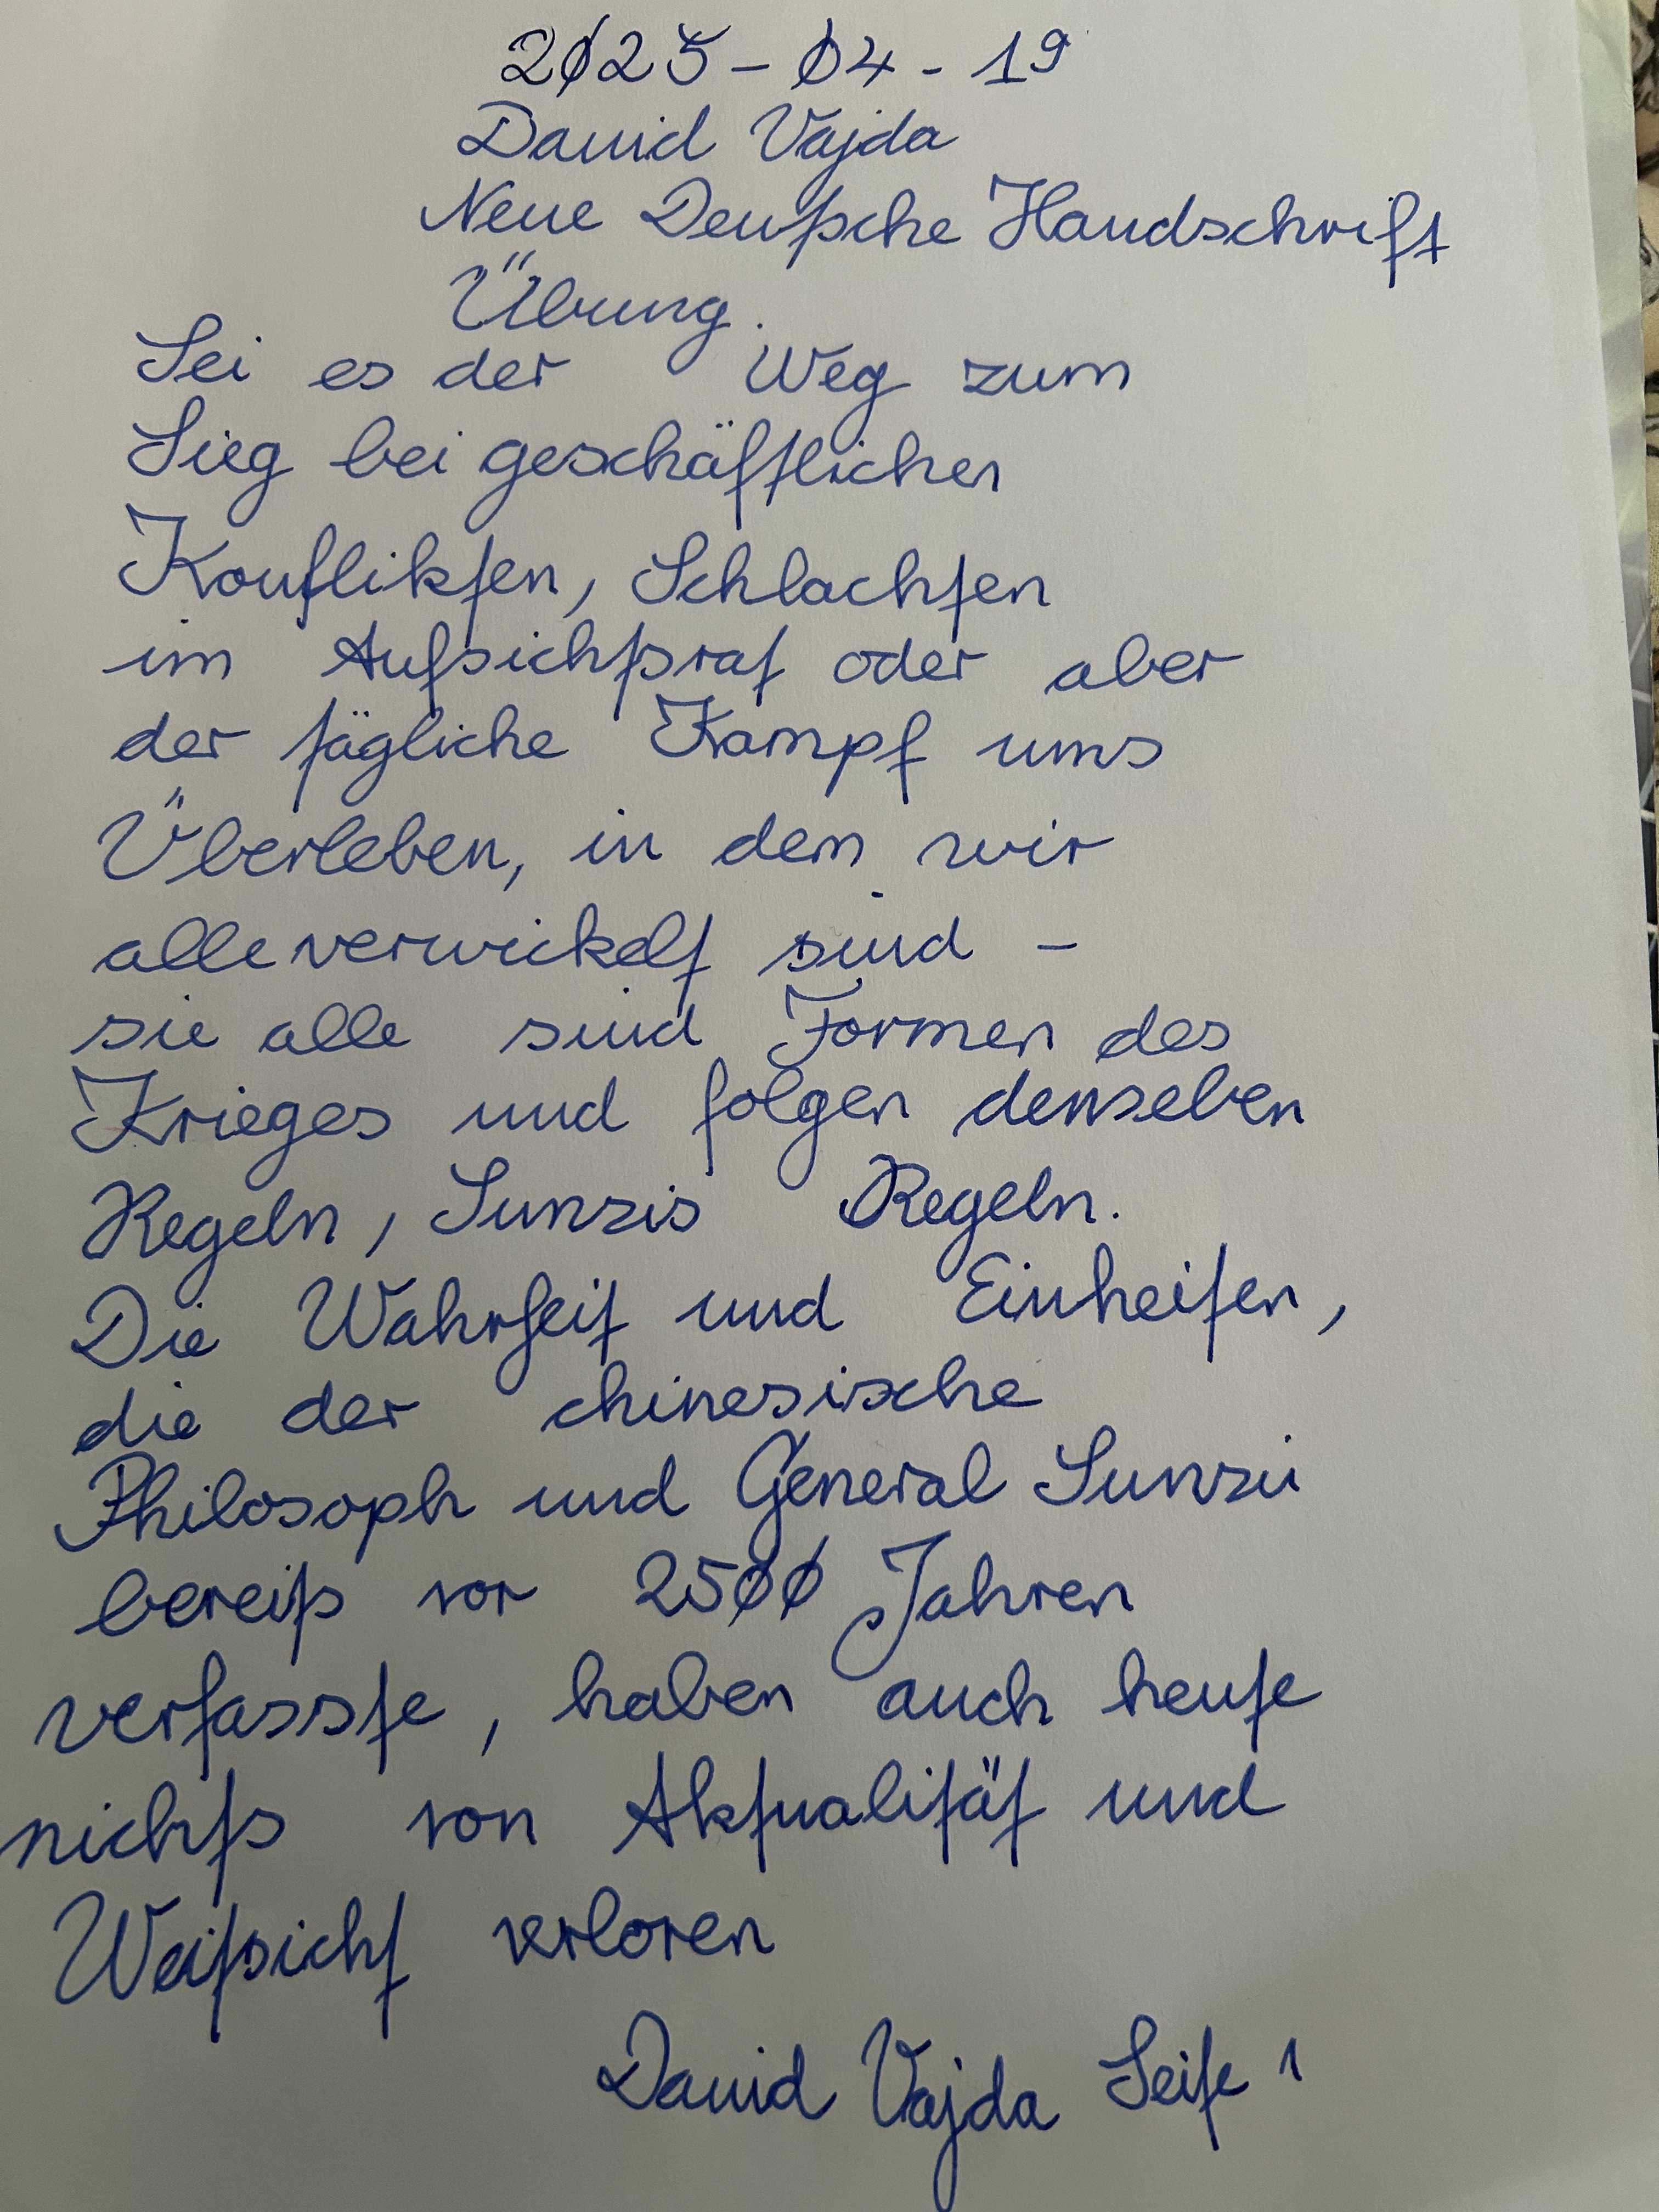 2025-04-19
David Vajda
Neue Deutsche Handschrift
Übung.
Sei es der Weg zum
Sieg bei geschäftlichen
Konflikten, Schlachten
im Aufsichtsrat oder aber
der tägliche Kampf ums
Überleben, in dem wir
alle verwickelt sind -
sie alle sind Formen des
Krieges und folgen denseben
Regeln, Sunzis Regeln.
Die Wahrheit und Einheiten,
die der chinesische
Philosoph und General Sunzu
bereits vor 2500 Jahren
verfasste, haben auch heute
nichts von Aktualität und
Weitsicht verloren
David Vajda Seite 1